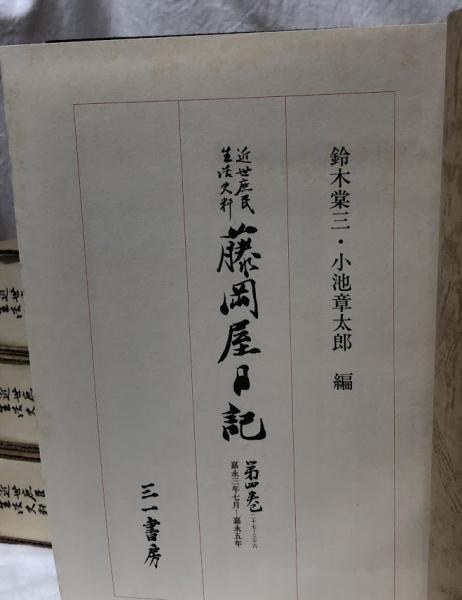 鈴木棠三・小池章太郎 編
近世庶民
生活史料
藤岡屋日記
第四巻
二十七−三十六
嘉永三年七月−嘉永五年
三一書房
近世
生活
近世庶
生活史
近世庶民
生活史料